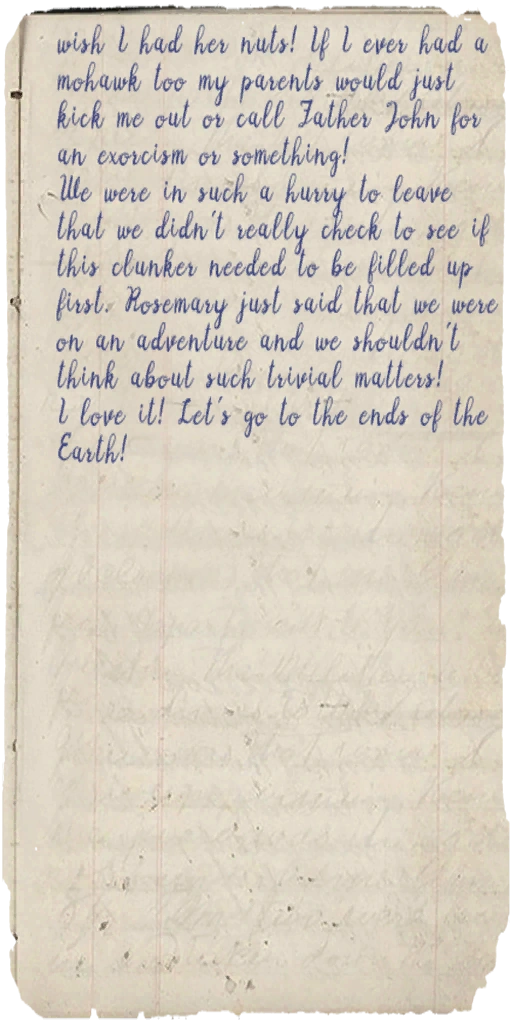 wish I had her nuts! If I ever had a
mohawk too my parents would just
kick me out or call Father John for
an exorcism or something!
We were in such a hurry to leave
that we didn't really check to see if
this clunker needed to be filled up
first. Rosemary just said that we were
on an adventure and we shouldn't
think about such trivial matters!
I love it! Let's go to the ends of the
Earth!